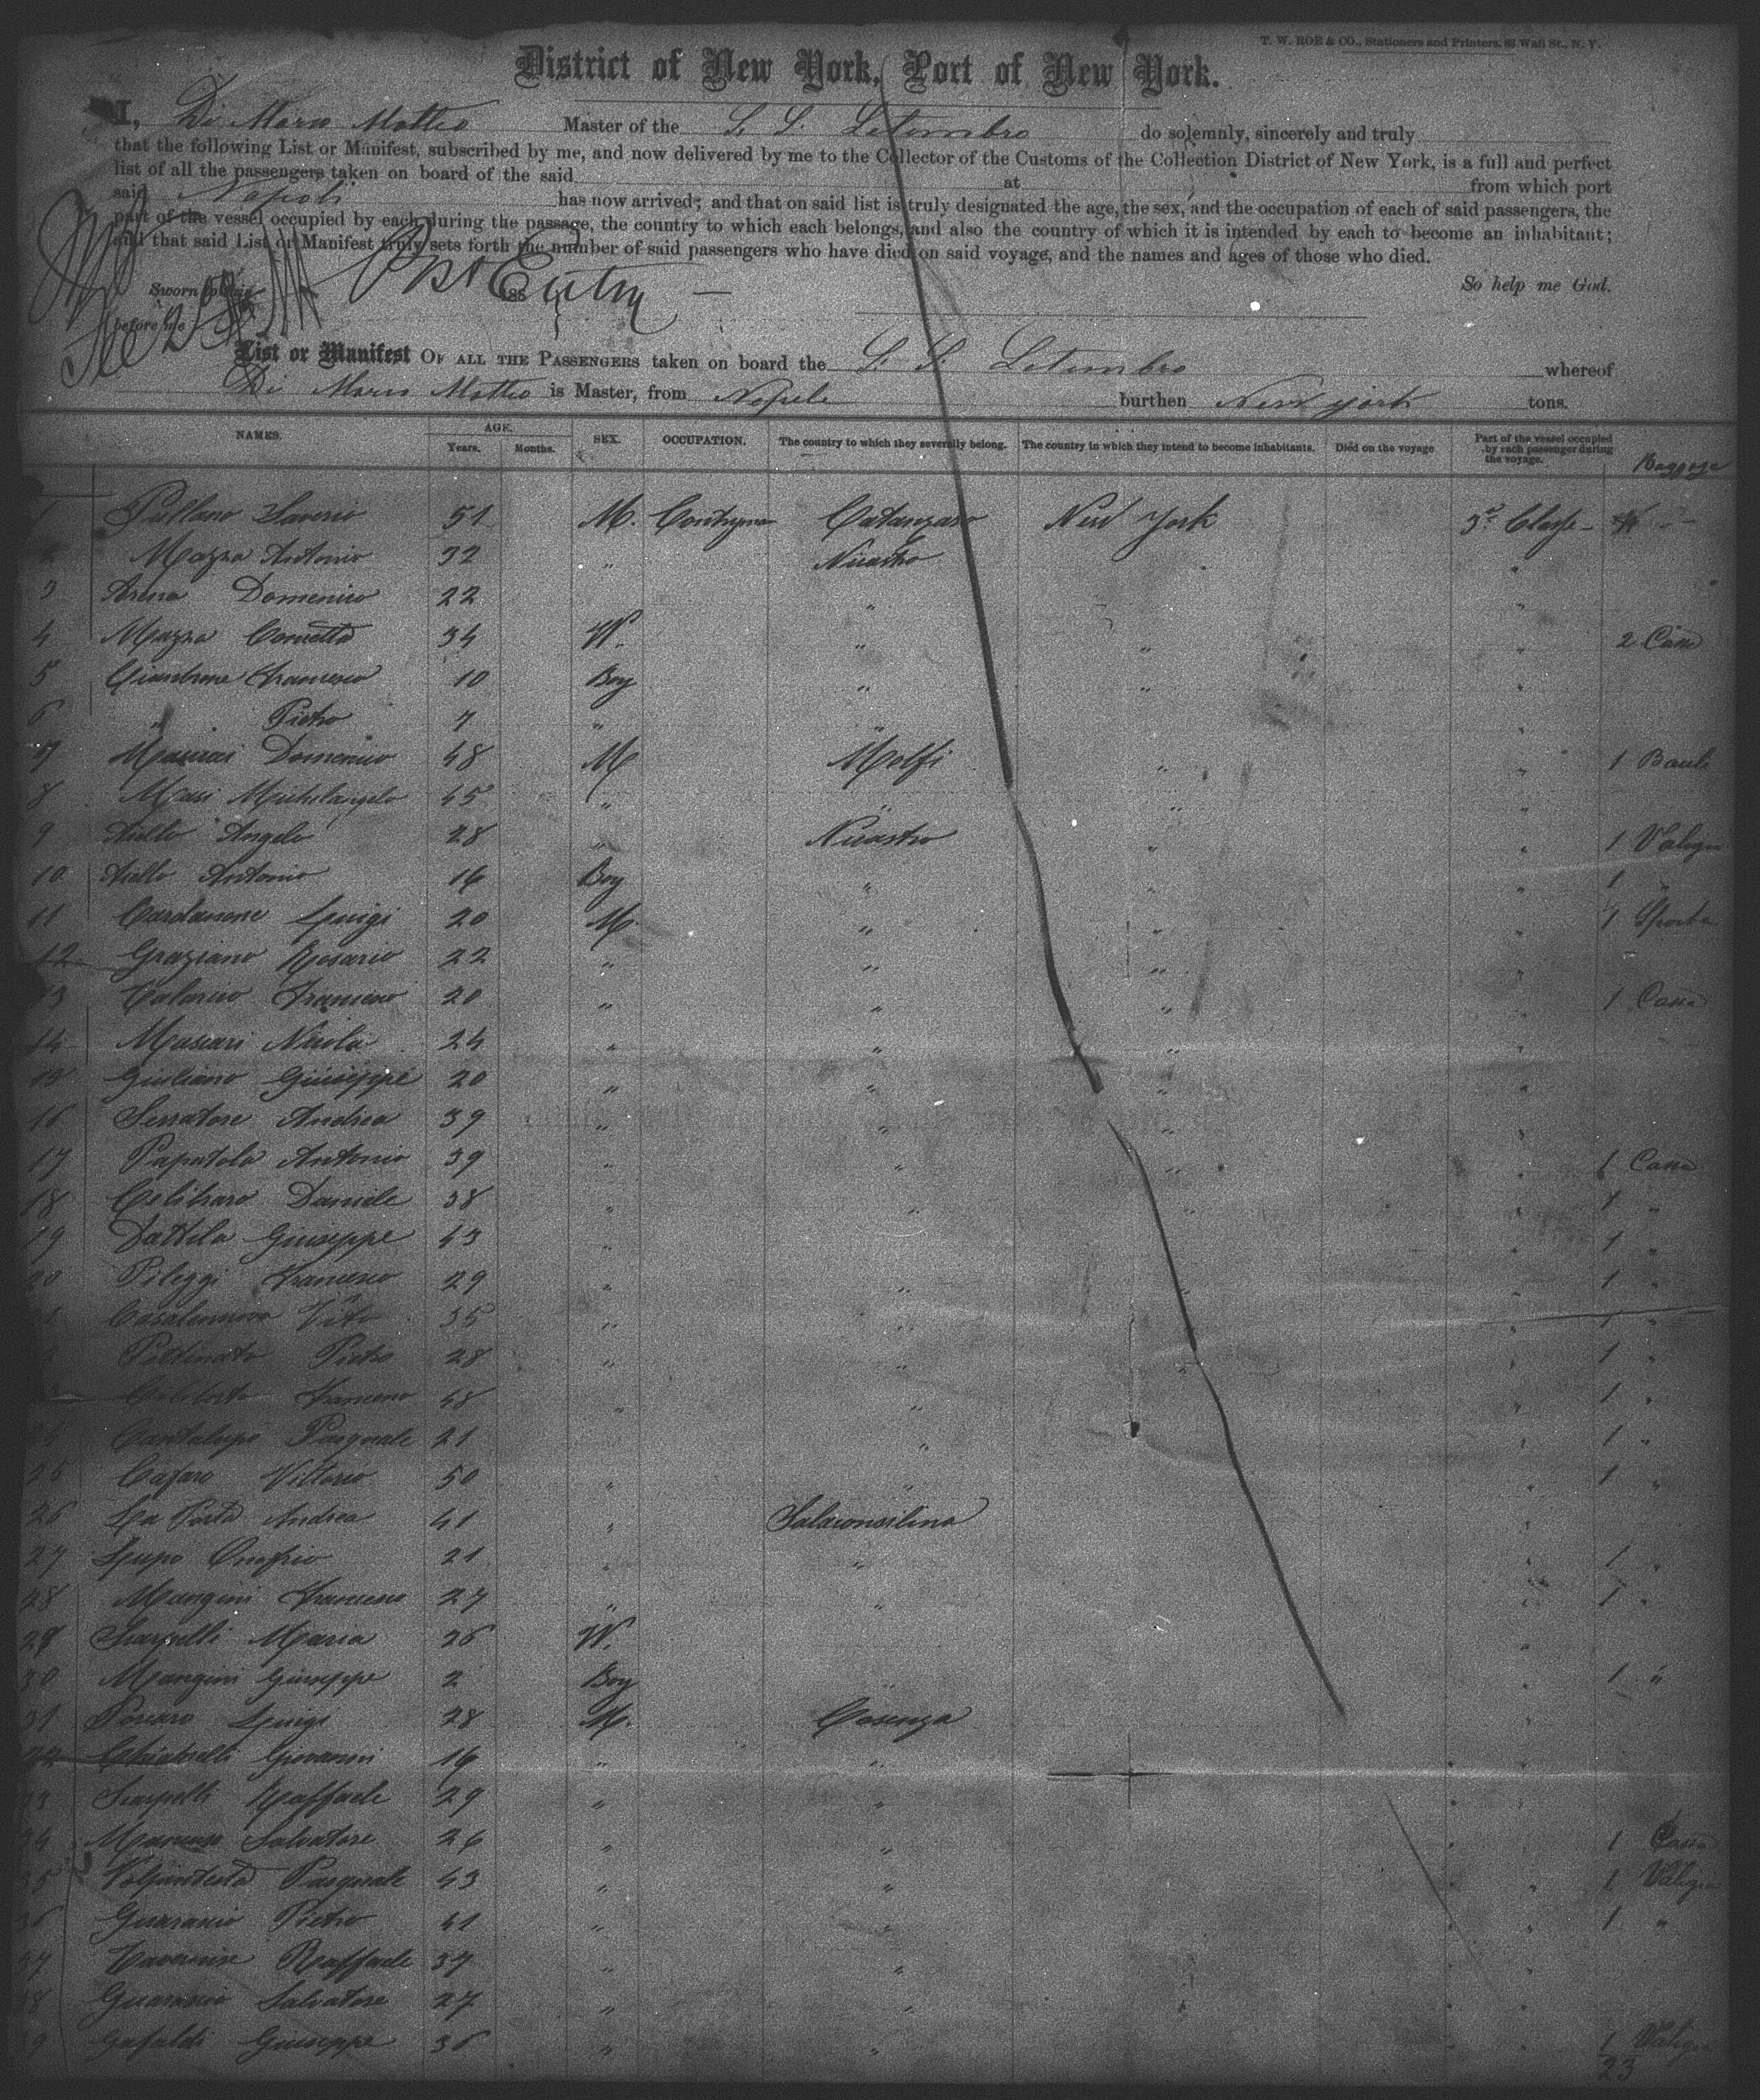 T. W. ROE & CO., Stationers and Printers, 83 Wall St., N. Y.
District of New York, Port of New York.
I, Di Marco Matteo Master of the S. S. Letimbro do solemnly, sincerely and truly
that the following List or Manifest, subscribed by me, and now delivered by me to the Collector of the Customs of the Collection District of New York, is a full and perfect
list of all the passengers taken on board of the said at from which port
said Napoli has now arrived; and that on said list is truly designated the age, the sex, and the occupation of each of said passengers, the
part of the vessel occupied by each during the passage, the country to which each belongs, and also the country of which it is intended by each to become an inhabitant;
and that said List or Manifest truly sets forth the number of said passengers who have died on said voyage, and the names and ages of those who died.
Post Entry
Sworn to this 188
So help me God.
before me
See
List or Manifest OF ALL THE PASSENGERS taken on board the S. S. Letimbro whereof
Di Marco Matteo is Master, from Napoli burthen New York tons.
NAMES. AGE. Years. Months. SEX. OCCUPATION. The country to which they severally belong. The country in which they intend to become inhabitants. Died on the voyage Part of the vessel occupied by each passenger during the voyage. Baggage
1 Pullano Saverio 51 M. Contryman Catanzaro New York 3d Classe
2 Mazza Antonio 32 " Nicastro "
3 Arena Domenico 22 " "
4 Mazza Concetta 34 W. " " " 2 Casse
5 Giambrone Francesco 10 Boy " " "
6 " Pietro 7 " " "
7 Domenico 48 M Melfi " " 1 Baule
8 Masi Michelangelo 45 " " "
9 Aiello Angelo 28 " Nicastro " " 1 Valigia
10 Aiello Antonio 16 Boy " " 1 "
11 Cardamone Luigi 20 M. " " " 1 Sporta
12 Graziano Rosario 22 " " " "
13 Francesco 20 " " " " 1 Cassa
14 Mascari Nicola 24 " " " "
15 Giuliano Giuseppe 20 " " " "
16 Serratore Andrea 39 " " " "
17 Papatola Antonio 39 " " " " 1 Cassa
18 Daniele 38 " " " " 1 "
19 Dattilo Giuseppe 43 " " 1 "
20 Pileggi Francesco 29 " " " " 1 "
Casalenuovo Vito 35 " " " 1 "
Pottinato Pietro 28 " " " " 1 "
Francesco 48 " " " 1 "
Cantalupo Pasquale 21 " " 1 "
25 Cafaro Vittorio 50 " " " 1 "
26 La Porta Andrea 41 " Salaconsilina "
27 Lupo Onofrio 21 " " " 1 "
28 Mangini Francesco 27 " " " 1 "
29 Scarpelli Maria 26 W. "
30 Mangini Giuseppe 2 Boy " " 1 "
31 Porcaro Luigi 28 M. Cosenza "
Giovanni 16 " " "
33 Scarpelli Raffaele 29 " " "
34 Mancuso Salvatore 26 " " " 1 Cassa
35 Volpintesta Pasquale 43 " " " 1 Valigia
36 Guarascio Pietro 41 " " " 1 "
37 Tavernise Raffaele 37 " " "
38 Guarascio Salvatore 27 " " "
39 Giuseppe 36 " " " 1 Valigia
23